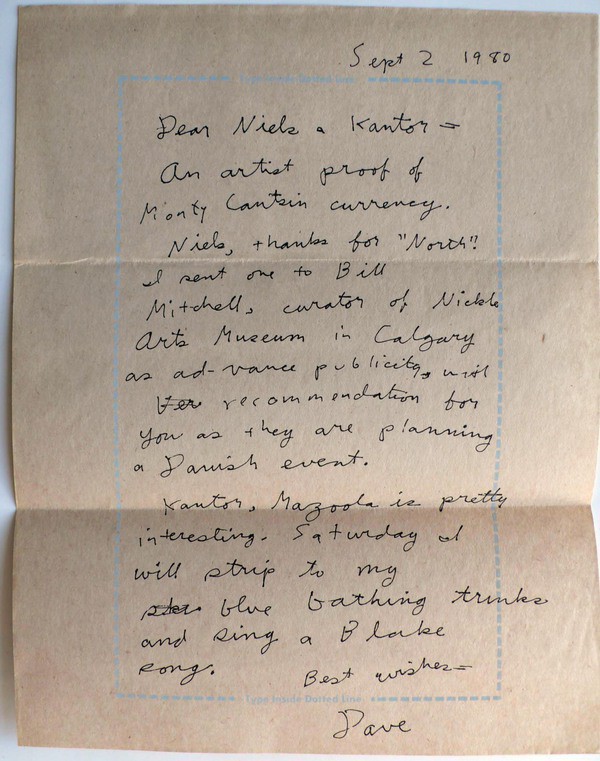 Sept 2 1980
Type Inside Dotted Line
Dear Niels & Kantor =
An artist proof of
Monty Cantsin currency.
Niels, thanks for "North".
I sent one to Bill
Mitchell, curator of Nickle
Arts Museum in Calgary
as ad-vance publicity, with
recommendation for
you as they are planning
a Danish event.
Kantor, Mazoola is pretty
interesting. Saturday I
will strip to my
blue bathing trunks
and sing a Blake
song.
Best wishes =
Type Inside Dotted Line
Dave